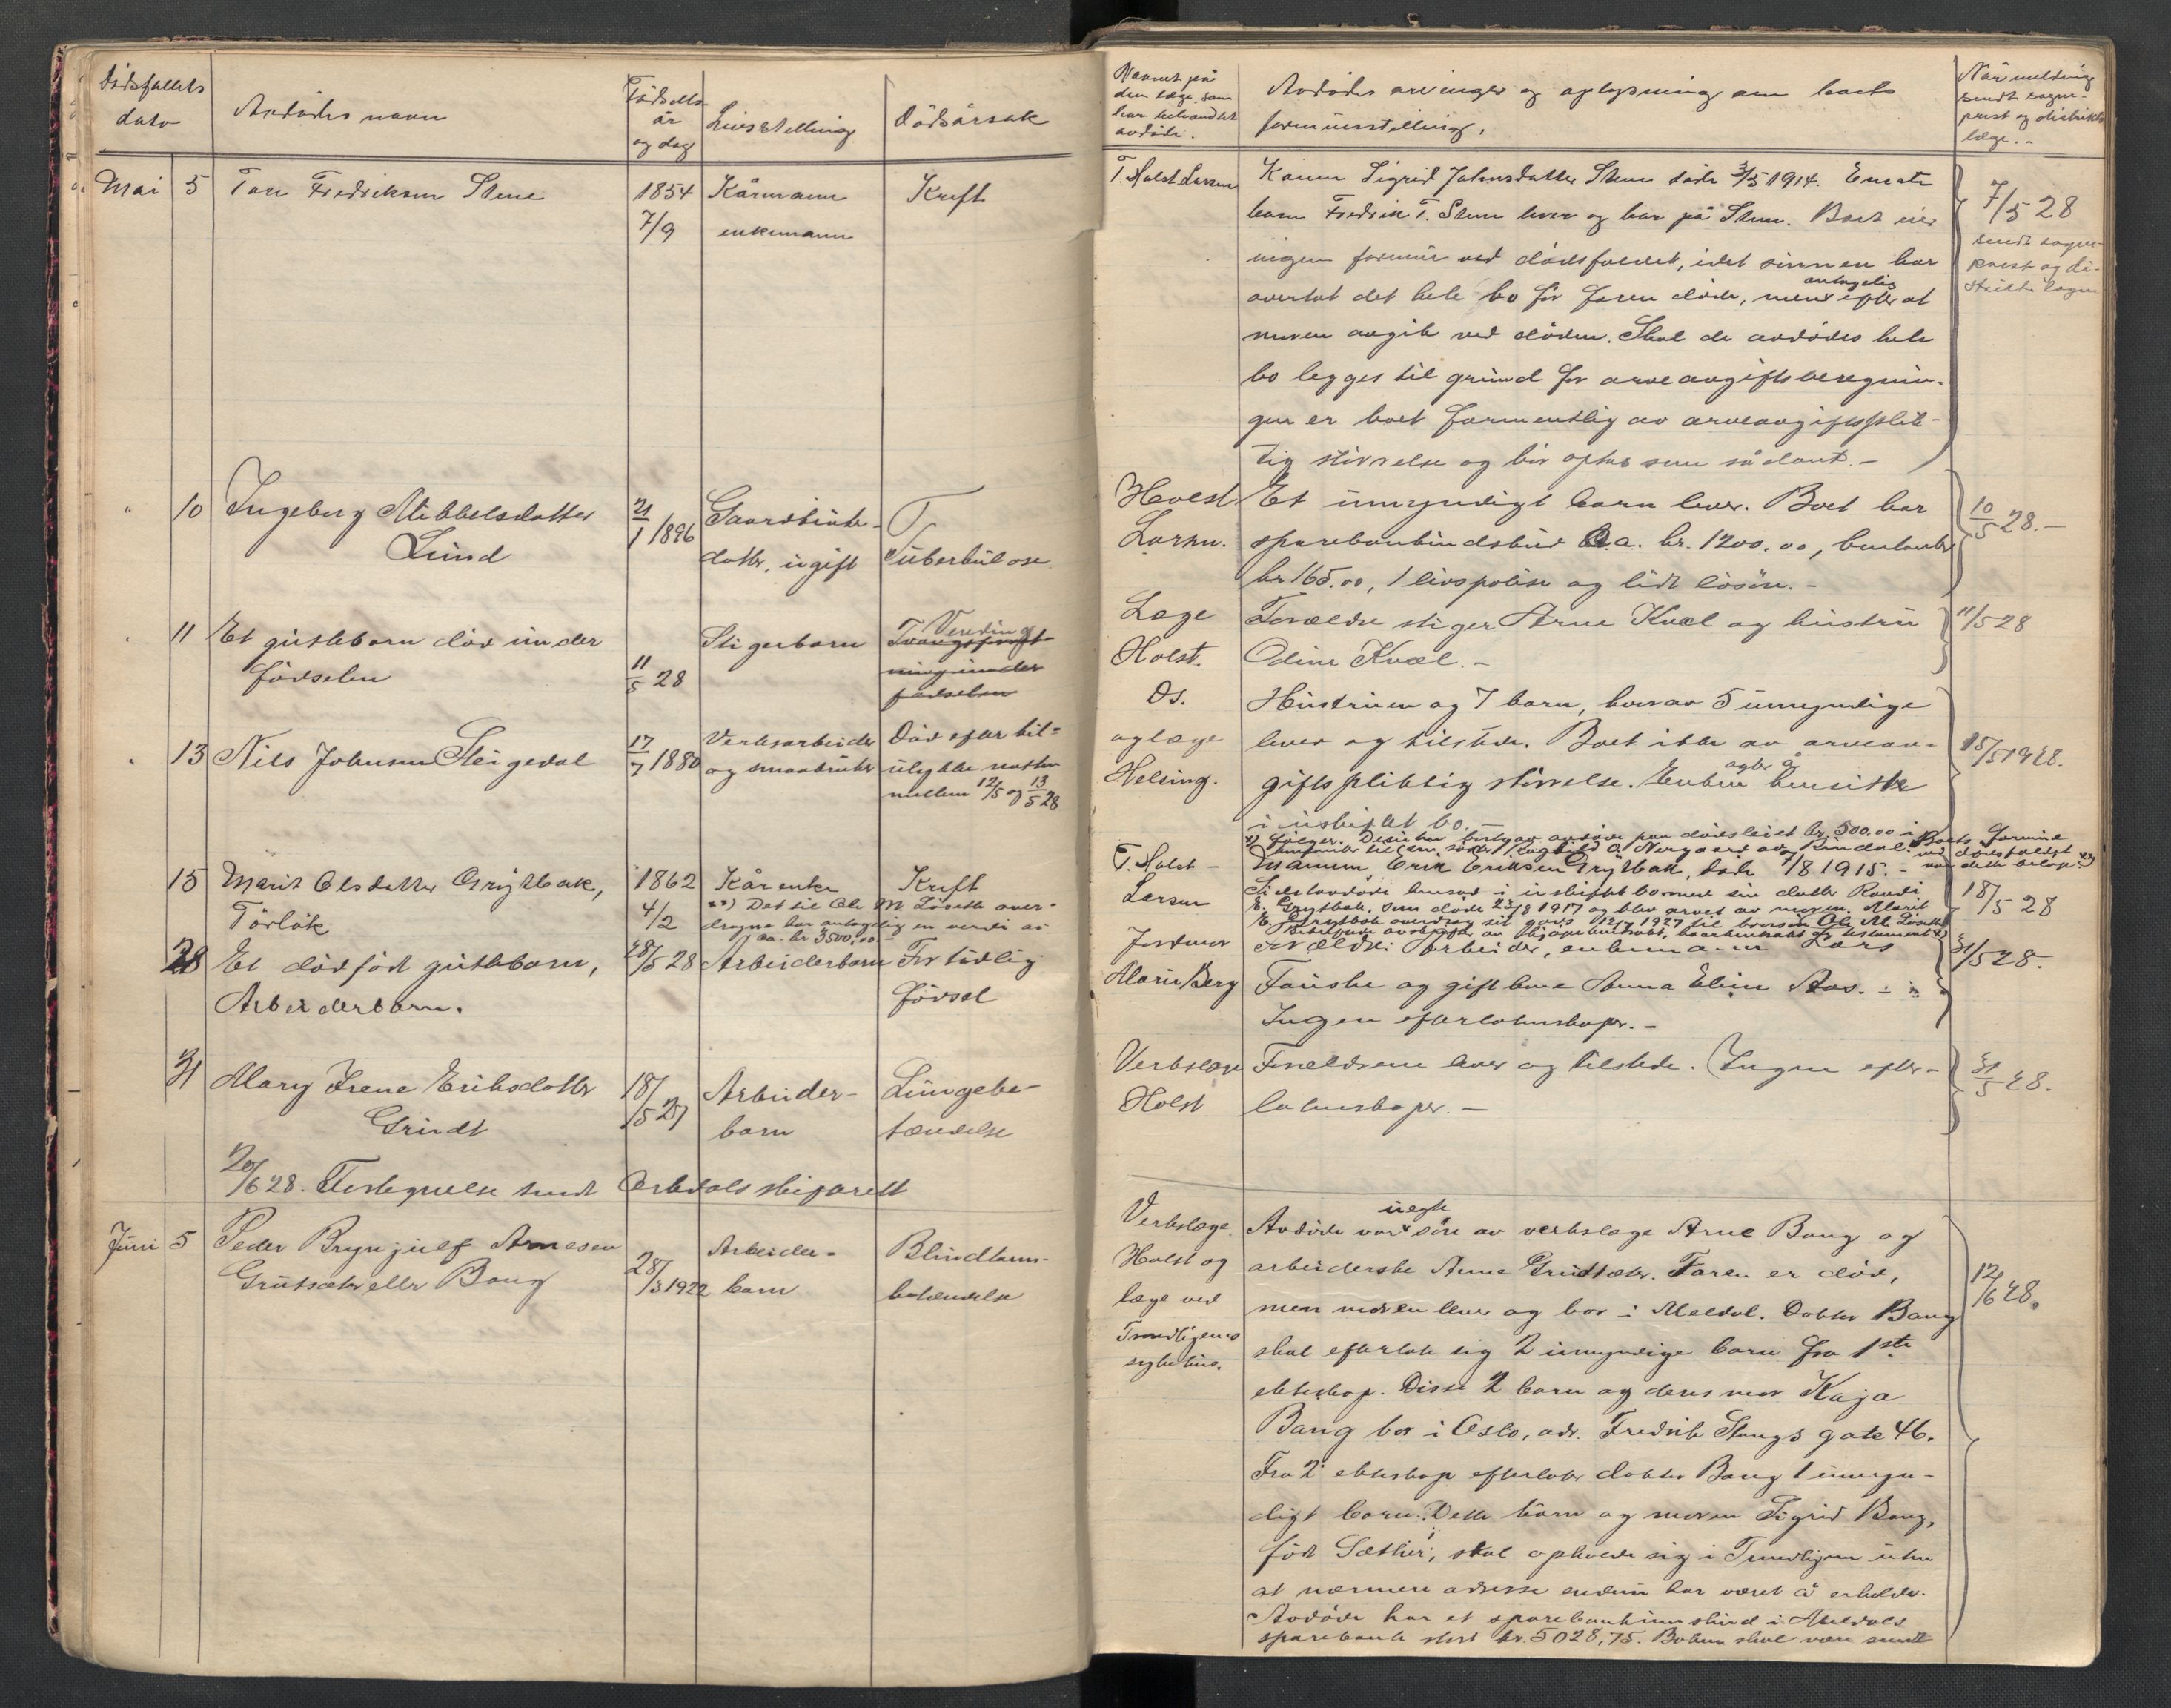 Dødsfallets
dato
Avdødes navn
Fødsels
år
og dag
Livsstilling
Dødsårsak
Mai 5 Tore Fredriksen Stene 1854 Kårmann Kreft
7/9 enkemann
" 10 Ingeborg Mikkelsdatter 21/1 1896 Gaardbruker-
Lund datter, ugift Tuberkulose.
" 11 Et guttebarn død under Stigerbarn Vending
fødselen 11/5 28 ning under
fødselen
" 13 Nils Johnsen Steigedal 17/7 1880 Verksarbeider Død efter bil-
og smaabruker ulykke natten
mellem 12/5 og 13/5 28
15 Marit Olsdatter Grytbak, 1862 Kårenke Kreft
Törlök 4/2 xx) Det til Ole M. Løseth over-
dragne har antagelig en verdi av
ca. kr 3500,00
28 Et dødfødt guttebarn, 28/5 28 Arbeiderbarn For tidlig
Arbeiderbarn. fødsel
31 Mary Irene Eriksdatter 18/5 27 Arbeider- Lungebe-
Grindt barn tændelse
20/6 28. Fortegnelse sendt Orkdals skifterett
Juni 5 Peder Brynjulf Arnesen Arbeider- Blindtarm-
Grutsæter eller Bang 28/3 1922 barn betændelse
Navnet på
den læge, som
har behandlet
avdøde.
Avdødes arvinger og oplysning om boets
formuesstilling.
Når melding
sendt sogne-
prest og distrikts
læge.
T. Holst Larsen Konen Sigrid Johnsdatter Stene døde 3/5 1914. Eneste
barn Fredrik T. Stene lever og bor på Stene. Boet eier
ingen formue ved dødsfaldet, idet sønnen har
overtat det hele bo før faren døde, men antagelig efter at
moren avgik ved døden. Skal de avdødes hele
bo legges til grund for arveavgiftsberegnin-
gen er boet formentlig av arveavgiftsplik-
tig størrelse og bør optas som sådant.-
7/5 28
sendt sogne-
prest og di-
striktslægen
Holst Et umyndigt barn lever. Boet har
Larsen. sparebankindskud ca. kr. 1200.00, kontanter
kr 165.00, 1 livspolise og lidt løsøre.-
10/5 28.-
Læge Forældre stiger Arne Kvæl og hustru
Holst. Odine Kvæl.-
11/5 28
Ds. Hustruen og 7 barn, hvorav 5 umyndige
og læge lever og tilstede. Boet ikke av arveav-
Helsing. giftspliktig størrelse. Enken agter å hensitte
i uskiftet bo.-
15/5 1928.
T. Holst- Mannen Erik Eriksen Grytbak, døde 7/8 1915.-
Larsen Sidstavdøde hensad i uskiftet bo med sin datter Randi
E. Grytbak, som døde 23/8 1917 og blev arvet av moren. Marit
E. Grytbak overdrog sit gods 1927 til Ole M. Løseth
18/5 28
Jordmor Forældre: Arbeider, enkemann Lars
Marie Berg Fauske og gift kone Anna Elin Aas.-
Ingen efterlatenskaper.-
31/5 28.
Verkslæge Forældrene lever og tilstede. Ingen efter-
Holst latenskaper.-
31/5 28.
Verkslæge Avdøde var uegte søn av verkslæge Arne Bang og
Holst og arbeiderske Anne Grutsæter. Faren er død,
læge ved men moren lever og bor i Meldal. Doktor Bang
Trondhjems skal efterlate sig 2 umyndige barn fra 1ste
sykehus. ekteskap. Disse 2 barn og deres mor Kaja
Bang bor i Oslo, adr. Fredrik Stangs gate 46.
Fra 2. ekteskap efterlater doktor Bang 1 umyn-
digt barn. Dette barn og moren Sigrid Bang,
født Sæther, skal opholde sig i Trondhjem uten
at nærmere adresse endnu har været å erholde.
Avdøde har et sparebankinnskud i Meldals
sparebank stort kr. 5028,75. Boken skal være sendt
12/6 28.